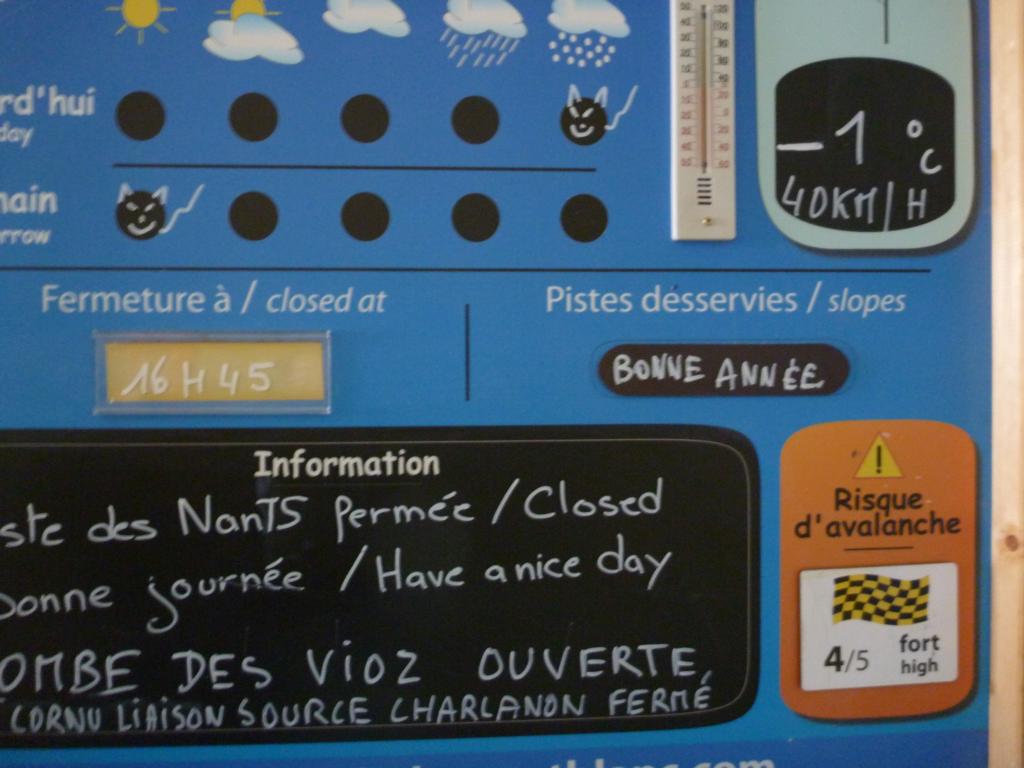 rd'hui
day
main
rrow
-1 °C
40KM/H
Fermeture à / closed at
Pistes désservies / slopes
16H45
BONNE ANNÉE
Information
ste des NanTS fermée / Closed
Bonne journée / Have a nice day
OMBE DES VIOZ OUVERTE,
CORNU LIAISON SOURCE CHARLANON FERMÉ
Risque
d'avalanche
4/5 fort
high